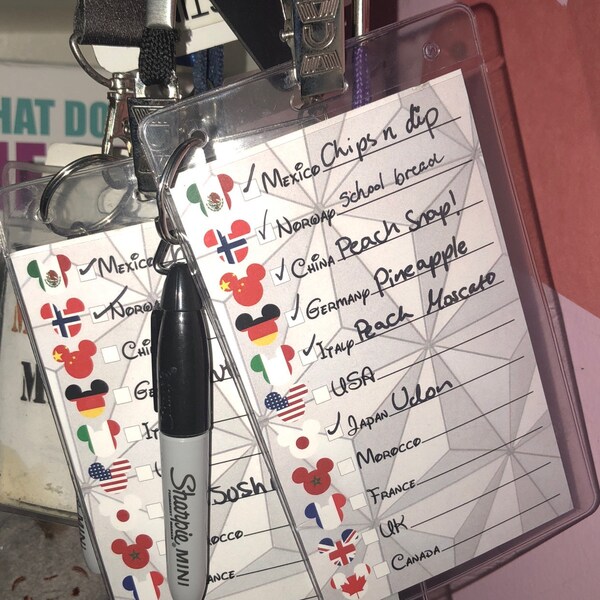 HAT DO
Mexico Chips n dip
Norway School bread
China Peach Snap!
Germany Pineapple
Italy Peach Moscato
USA
Japan Udon
Morocco
France
UK
Canada
Mexico
Sushi
Sharpie MINI
MINI